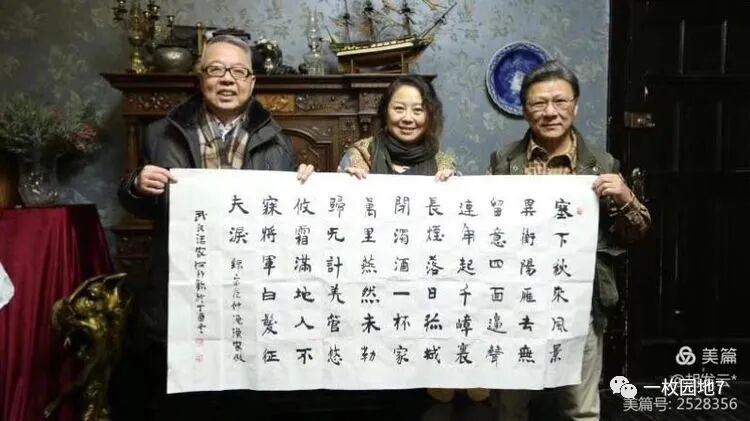 塞下秋来風景
異衡陽雁去無
留意四面邊聲
連角起千嶂裏
長煙落日孤城
閉濁酒一杯家
萬里燕然未勒
歸无計羌管悠
攸霜滿地人不
寐將軍白髮征
夫淚 錄宋范仲淹漁家傲
於丁酉
美篇
@胡发云*
一枚园地7
美篇号: 2528356